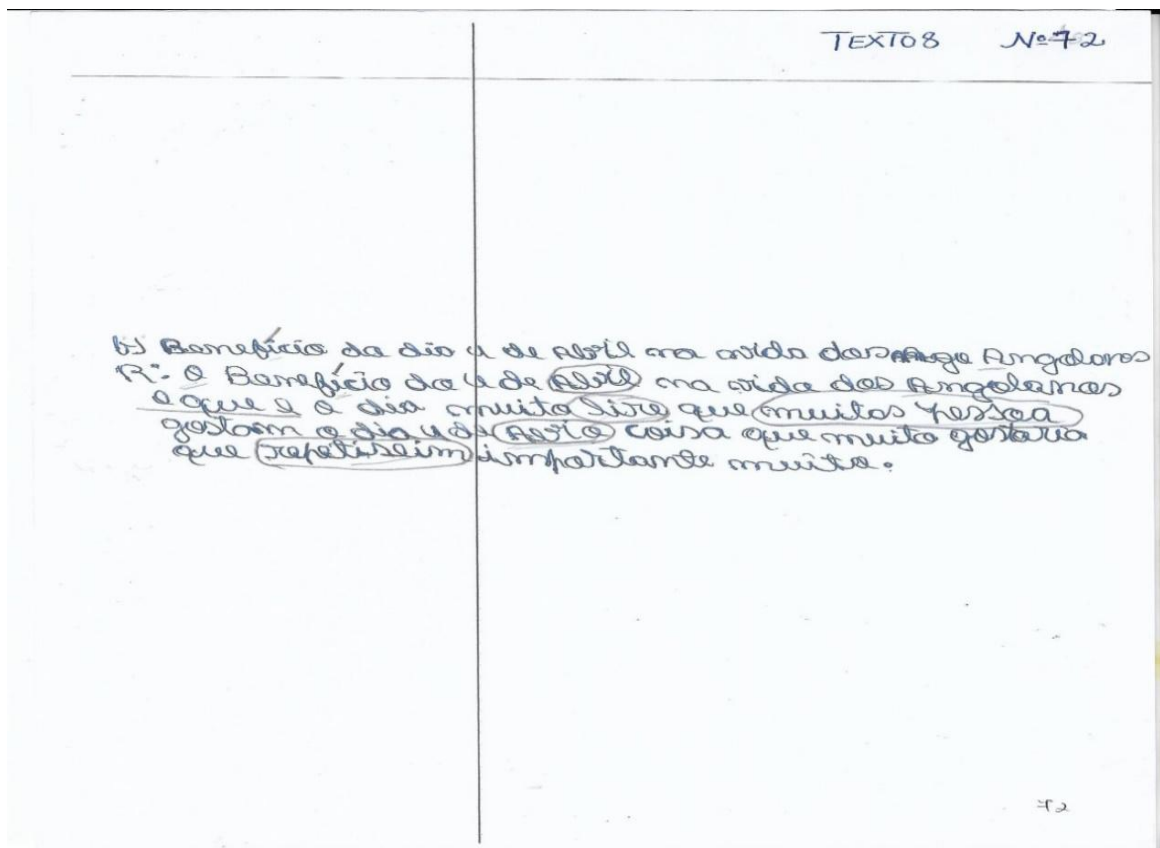 TEXTO 8 Nº 72
b) Benefício do dia 4 de Abril na vida dos Angolanos
R: O Benefício do 4 de Abril na vida dos Angolanos
e que e o dia muito livre que muitas pessoa
gostam o dia 4 de Abrio coisa que muito gostaria
que repetiseim importante muito.
72